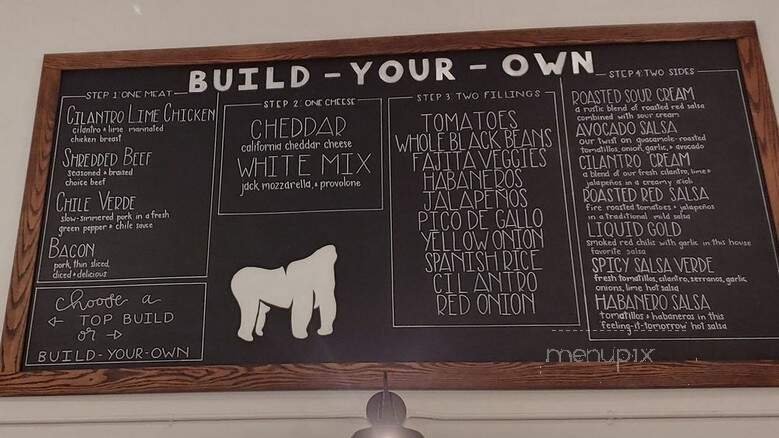 BUILD-YOUR-OWN
STEP 1: ONE MEAT
CILANTRO LIME CHICKEN
cilantro + lime marinated
chicken breast
SHREDDED BEEF
seasoned + braised
choice beef
CHILE VERDE
slow-simmered pork in a fresh
green pepper + chile sauce
BACON
pork, thin sliced,
diced + delicious
choose a
← TOP BUILD
or →
BUILD-YOUR-OWN
STEP 2: ONE CHEESE
CHEDDAR
california cheddar cheese
WHITE MIX
jack, mozzarella, + provolone
STEP 3: TWO FILLINGS
TOMATOES
WHOLE BLACK BEANS
FAJITA VEGGIES
HABANEROS
JALAPEÑOS
PICO DE GALLO
YELLOW ONION
SPANISH RICE
CILANTRO
RED ONION
STEP 4: TWO SIDES
ROASTED SOUR CREAM
a rustic blend of roasted red salsa
combined with sour cream
AVOCADO SALSA
our twist on guacamole-roasted
tomatillos, onion, garlic, + avocado
CILANTRO CREAM
a blend of our fresh cilantro, lime +
jalapeños in a creamy aioli
ROASTED RED SALSA
fire roasted tomatoes + jalapeños
in a traditional mild salsa
LIQUID GOLD
smoked red chilis with garlic in this house
favorite salsa
SPICY SALSA VERDE
fresh tomatillos, cilantro, serranos, garlic,
onions, lime hot salsa
HABANERO SALSA
tomatillos + habaneros in this
feeling-it-tomorrow hot salsa
menupix